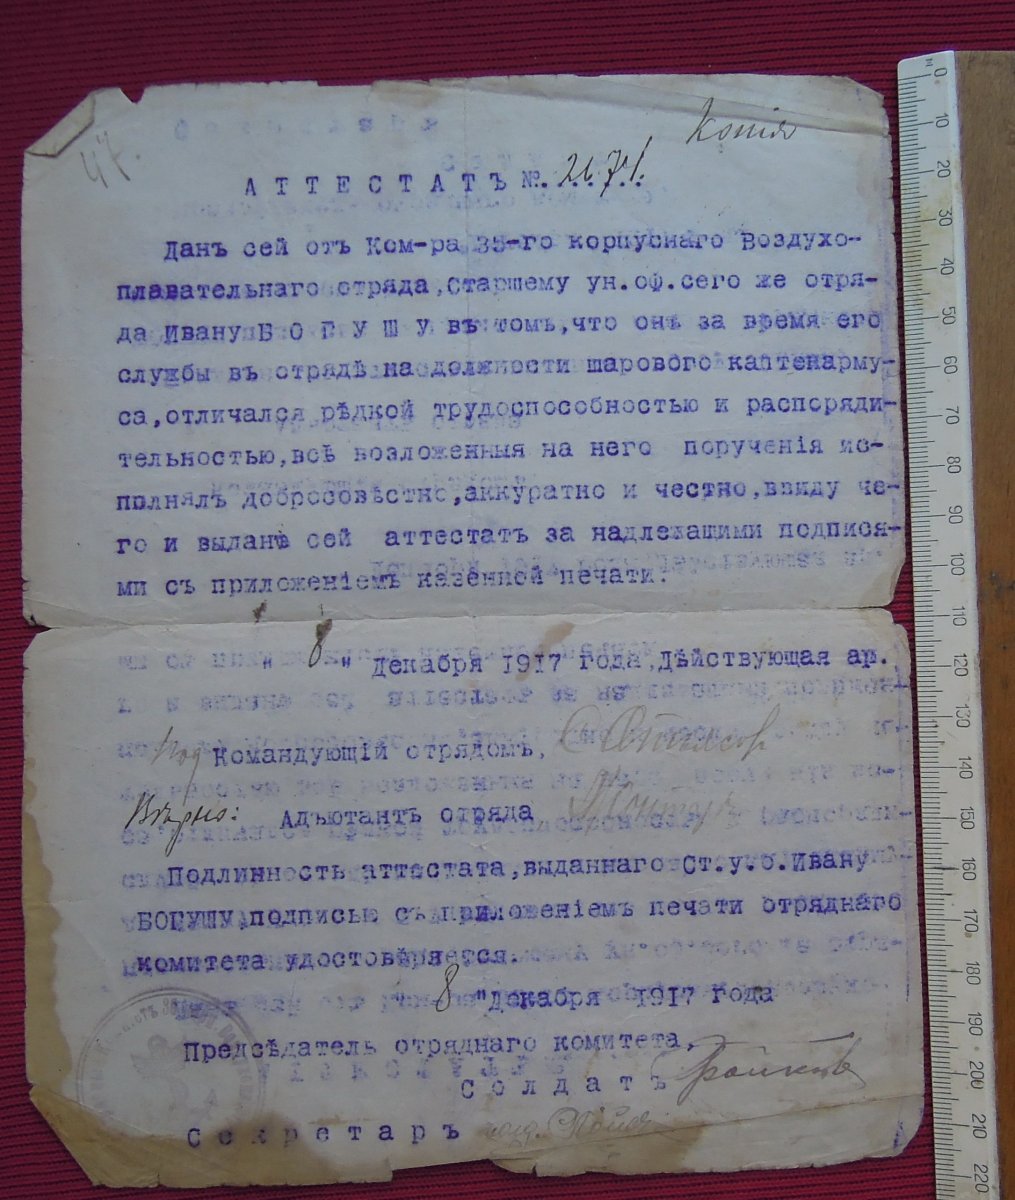 Копія
47.
АТТЕСТАТЪ №. 2671.
Данъ сей отъ Ком-ра 35-го корпуснаго Воздухо-
плавательнаго отряда, Старшему ун.оф.сего же отря-
да Ивану БОГУШУ въ томъ, что онъ за время его
службы въ отрядѣ на должности шарового каптенарму-
са, отличался рѣдкой трудоспособностью и распоряди-
тельностью, всѣ возложенныя на него порученія ис-
полнялъ добросовѣстно, аккуратно и честно, ввиду че-
го и выданъ сей аттестатъ за надлежащими подпися-
ми съ приложеніемъ казенной печати.
" 8 " Декабря 1917 года, Дѣйствующая ар.
Под Командующій отрядомъ,
Вѣрно: Адъютантъ отряда
Подлинность аттестата, выданнаго Ст.у.о.Ивану
БОГУШУ, подписью съ приложеніемъ печати отряднаго
комитета удостовѣряется.
8 "Декабря 1917 года
Предсѣдатель отряднаго комитета,
Солдатъ
Секретарь
0
10
20
30
40
50
60
70
80
90
100
110
120
130
140
150
160
170
180
190
200
210
220